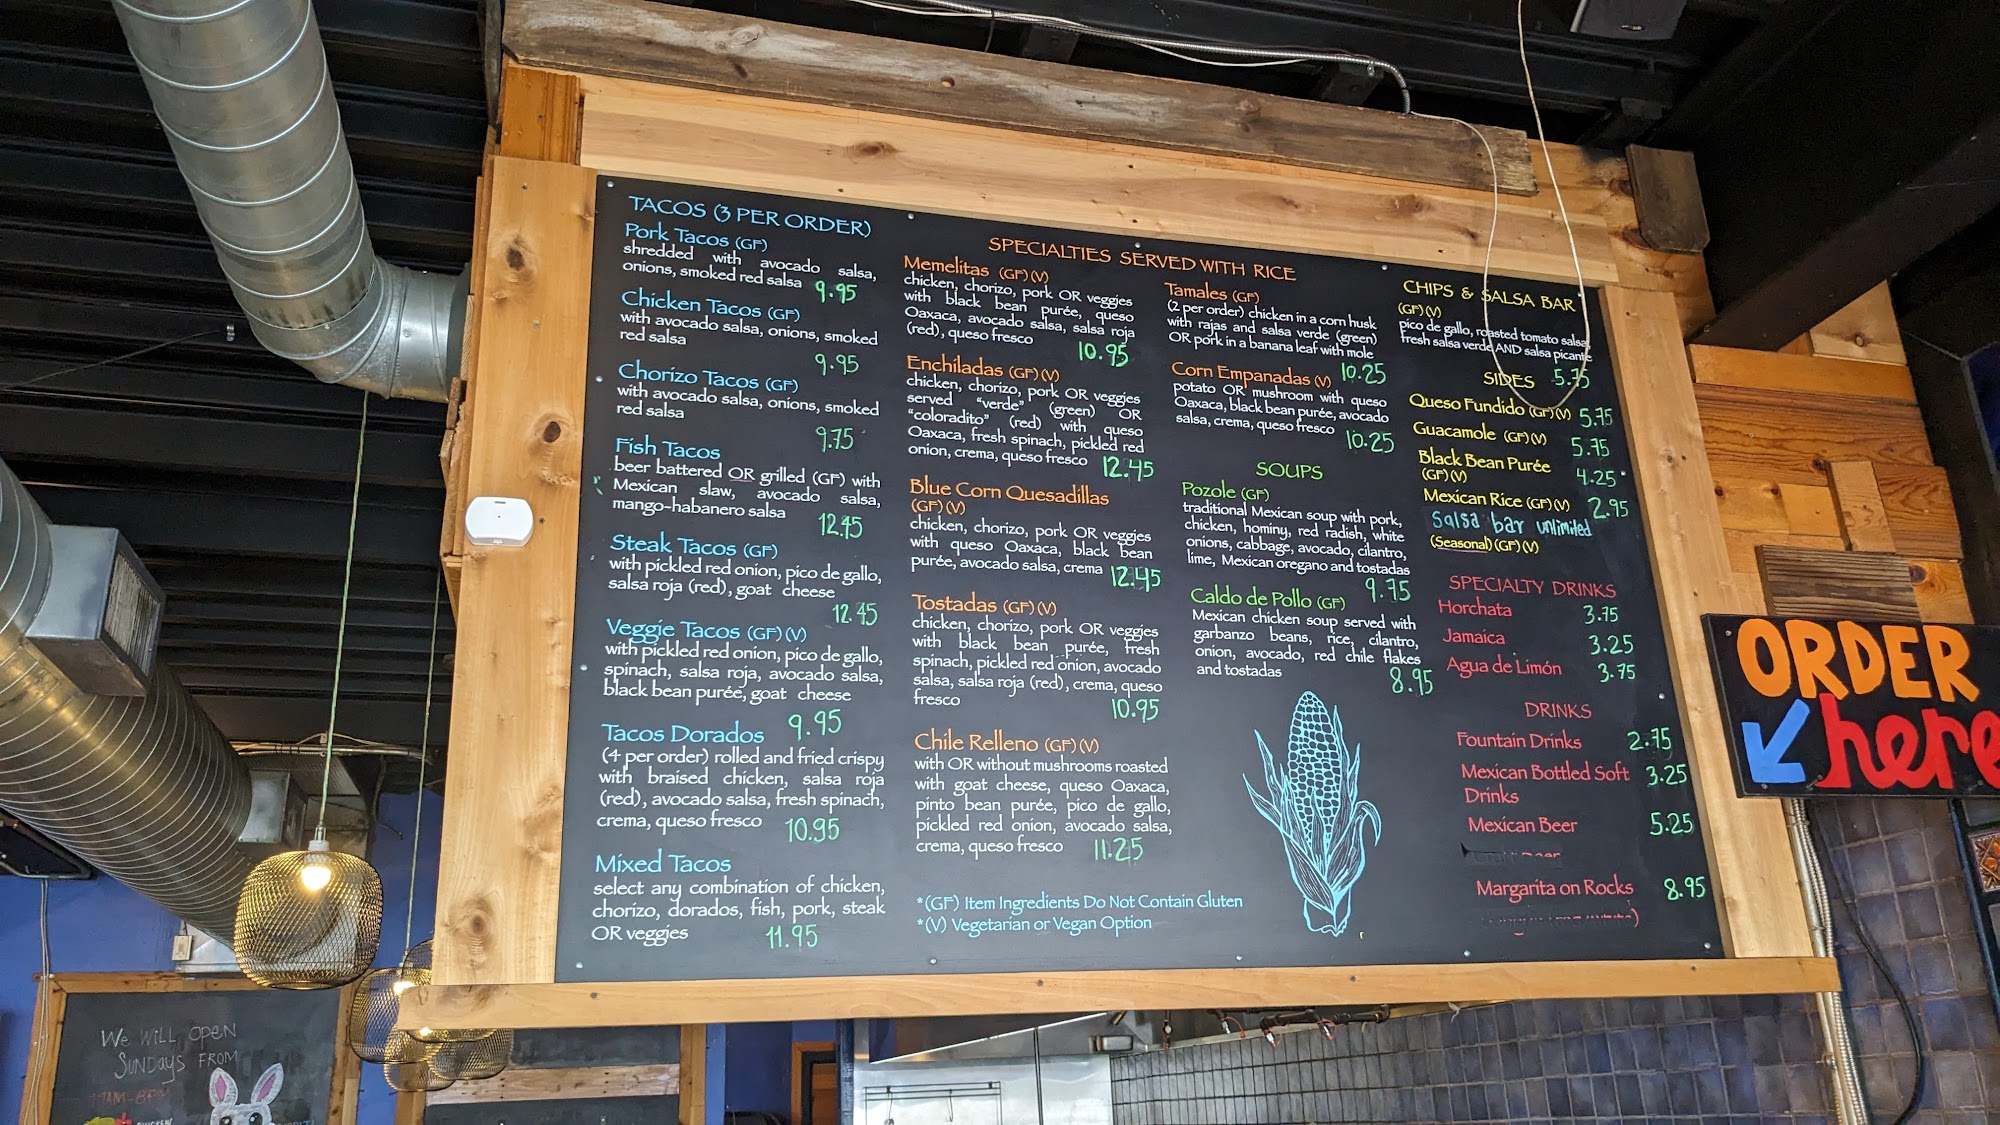 TACOS (3 PER ORDER)
Pork Tacos (GF)
shredded with avocado salsa,
onions, smoked red salsa 9.95
Chicken Tacos (GF)
with avocado salsa, onions, smoked
red salsa
9.95
Chorizo Tacos (GF)
with avocado salsa, onions, smoked
red salsa
9.75
Fish Tacos
beer battered OR grilled (GF) with
Mexican slaw, avocado salsa,
mango-habanero salsa 12.45
Steak Tacos (GF)
with pickled red onion, pico de gallo,
salsa roja (red), goat cheese
12.45
Veggie Tacos (GF)(V)
with pickled red onion, pico de gallo,
spinach, salsa roja, avocado salsa,
black bean purée, goat cheese
9.95
Tacos Dorados
(4 per order) rolled and fried crispy
with braised chicken, salsa roja
(red), avocado salsa, fresh spinach,
crema, queso fresco 10.95
Mixed Tacos
select any combination of chicken,
chorizo, dorados, fish, pork, steak
OR veggies 11.95
SPECIALTIES SERVED WITH RICE
Memelitas (GF)(V)
chicken, chorizo, pork OR veggies
with black bean purée, queso
Oaxaca, avocado salsa, salsa roja
(red), queso fresco 10.95
Enchiladas (GF)(V)
chicken, chorizo, pork OR veggies
served "verde" (green) OR
"coloradito" (red) with queso
Oaxaca, fresh spinach, pickled red
onion, crema, queso fresco 12.45
Blue Corn Quesadillas
(GF)(V)
chicken, chorizo, pork OR veggies
with queso Oaxaca, black bean
purée, avocado salsa, crema 12.45
Tostadas (GF)(V)
chicken, chorizo, pork OR veggies
with black bean purée, fresh
spinach, pickled red onion, avocado
salsa, salsa roja (red), crema, queso
fresco 10.95
Chile Relleno (GF)(V)
with OR without mushrooms roasted
with goat cheese, queso Oaxaca,
pinto bean purée, pico de gallo,
pickled red onion, avocado salsa,
crema, queso fresco 11.25
*(GF) Item Ingredients Do Not Contain Gluten
*(V) Vegetarian or Vegan Option
Tamales (GF)
(2 per order) chicken in a corn husk
with rajas and salsa verde (green)
OR pork in a banana leaf with mole
10.25
Corn Empanadas (V)
potato OR mushroom with queso
Oaxaca, black bean purée, avocado
salsa, crema, queso fresco 10.25
SOUPS
Pozole (GF)
traditional Mexican soup with pork,
chicken, hominy, red radish, white
onions, cabbage, avocado, cilantro,
lime, Mexican oregano and tostadas
9.75
Caldo de Pollo (GF)
Mexican chicken soup served with
garbanzo beans, rice, cilantro,
onion, avocado, red chile flakes
and tostadas 8.95
CHIPS & SALSA BAR
(GF)(V)
pico de gallo, roasted tomato salsa,
fresh salsa verde AND salsa picante
5.75
SIDES
Queso Fundido (GF)(V) 5.75
Guacamole (GF)(V) 5.75
Black Bean Purée
(GF)(V) 4.25
Mexican Rice (GF)(V) 2.95
Salsa bar unlimited
(Seasonal)(GF)(V)
SPECIALTY DRINKS
Horchata 3.75
Jamaica 3.25
Agua de Limón 3.75
DRINKS
Fountain Drinks 2.75
Mexican Bottled Soft 3.25
Drinks
Mexican Beer 5.25
Margarita on Rocks 8.95
ORDER
here
WE WILL OPEN
SUNDAYS FROM